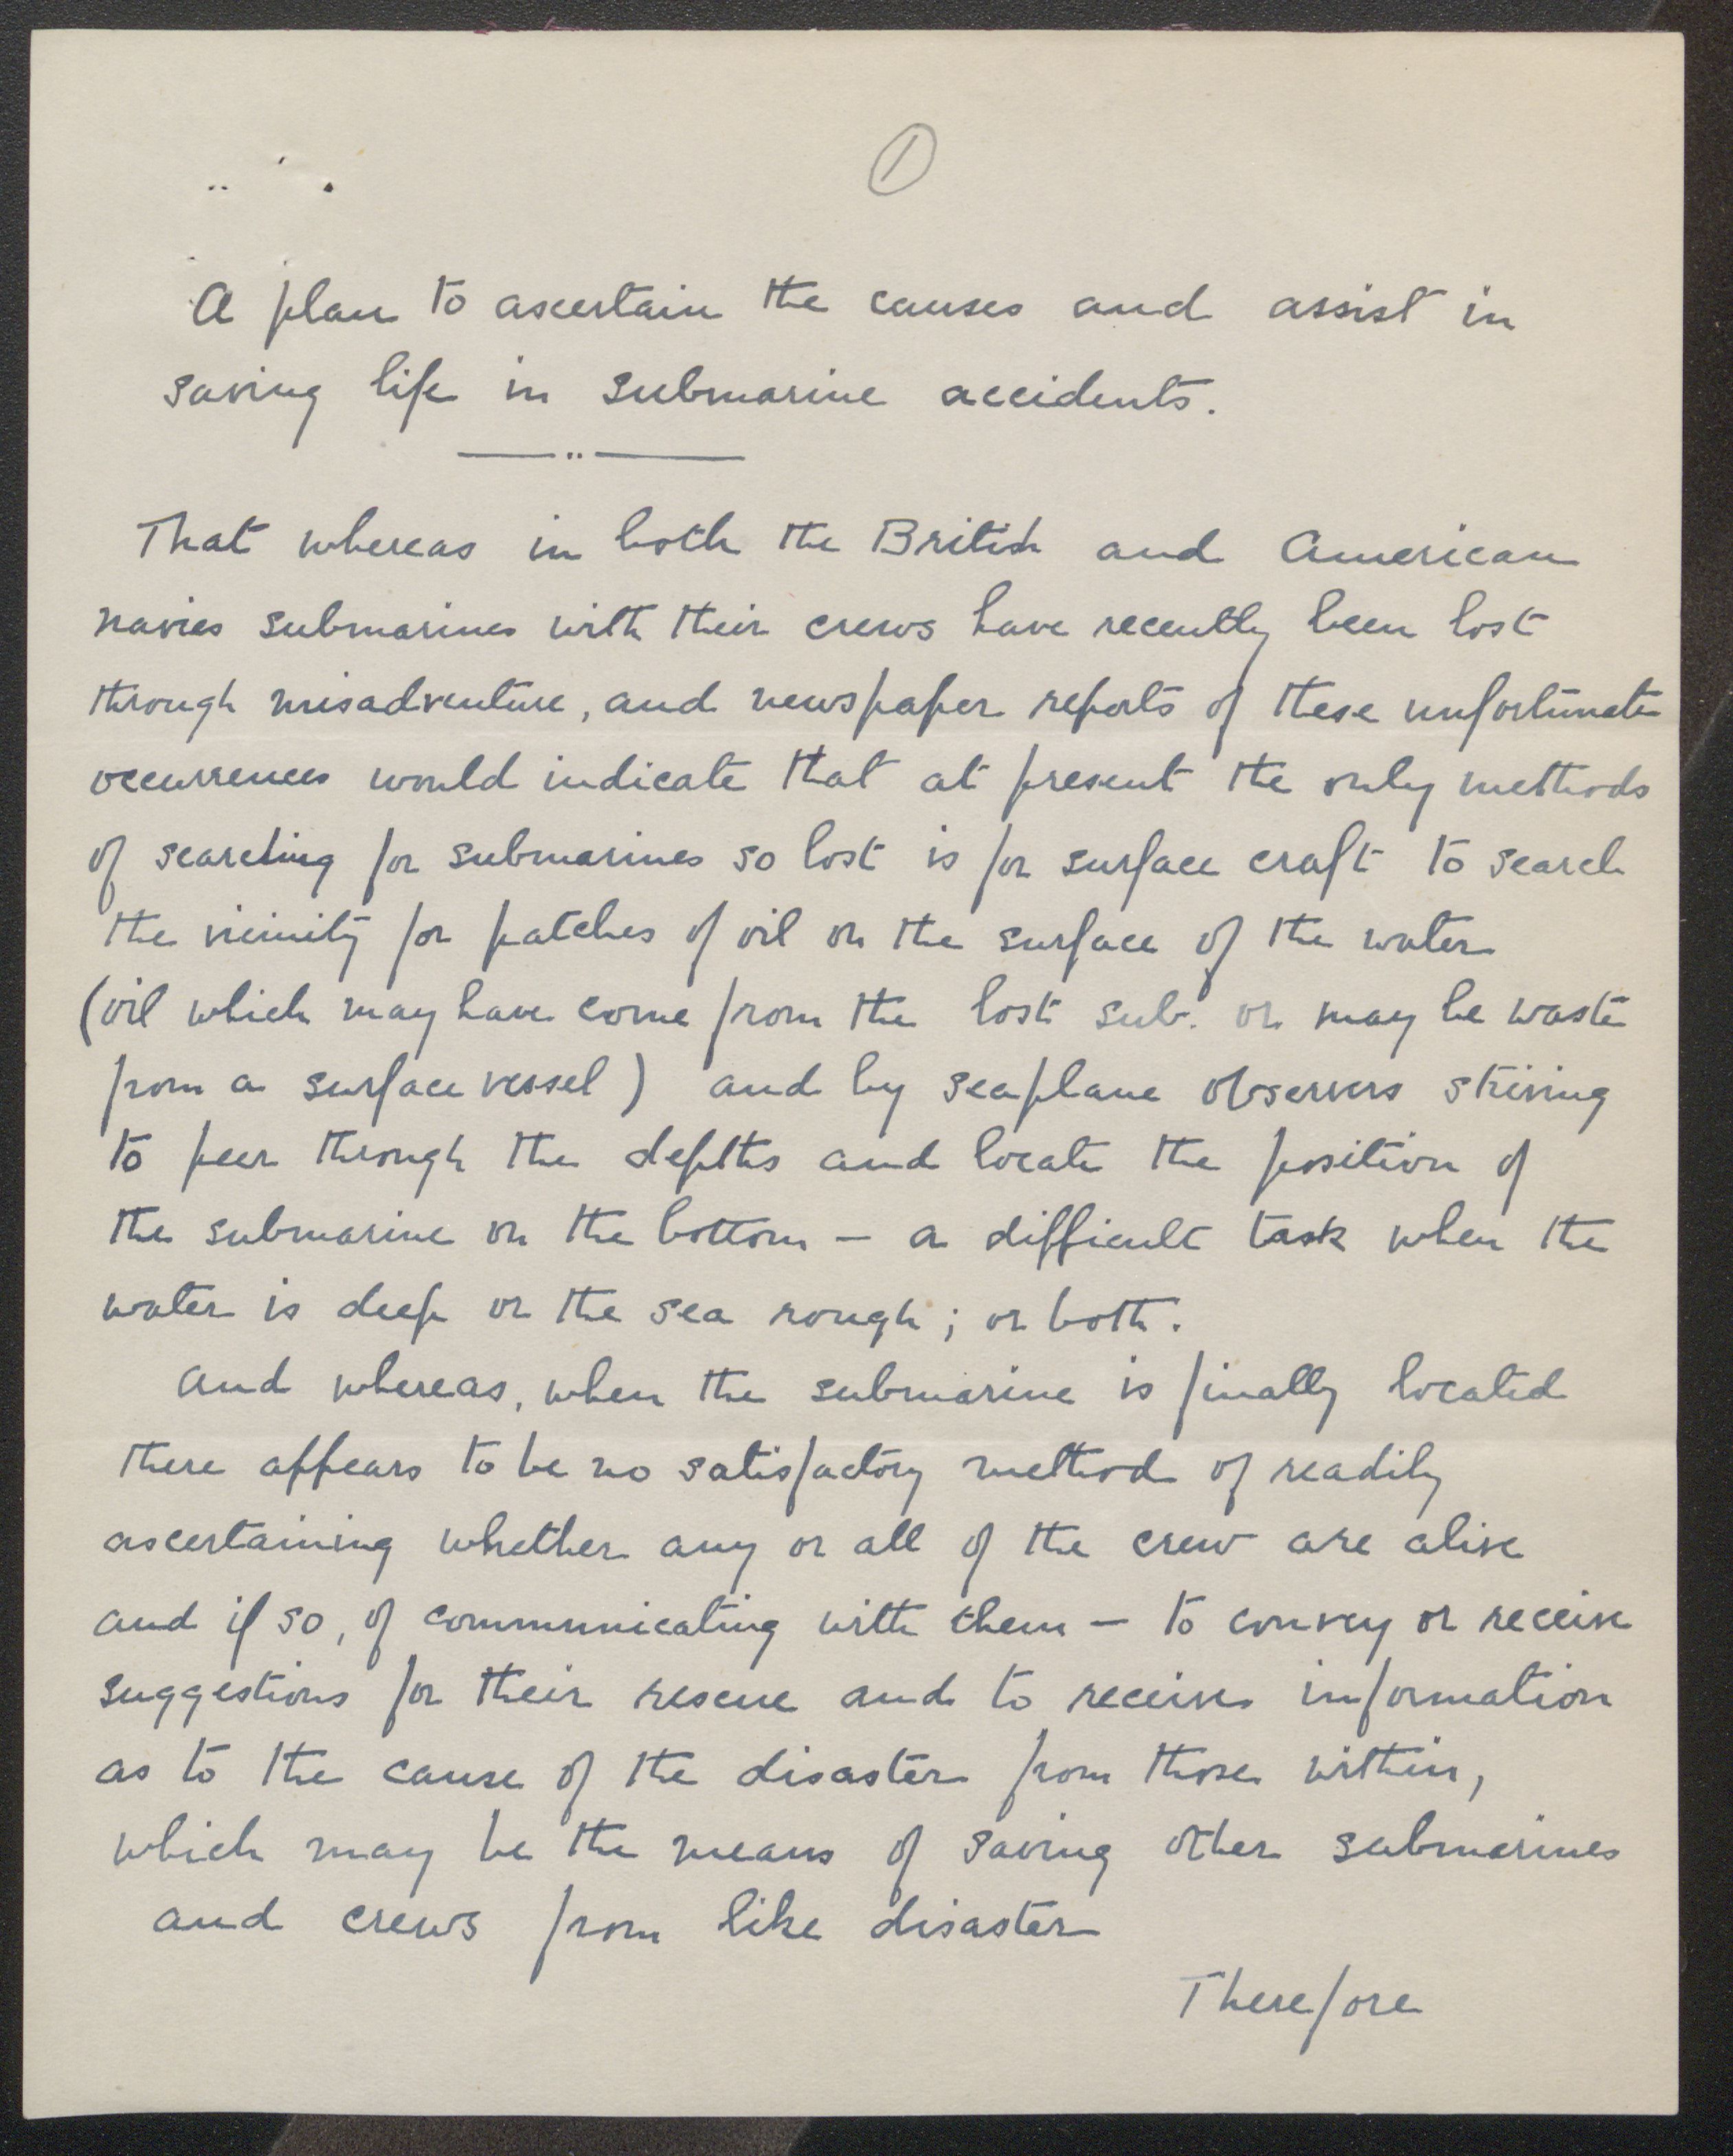 1
A plan to ascertain the causes and assist in
saving life in submarine accidents.
That whereas in both the British and American
navies submarines with their crews have recently been lost
through misadventure, and newspaper reports of these unfortunate
occurrences would indicate that at present the only methods
of searching for submarines so lost is for surface craft to search
the vicinity for patches of oil on the surface of the water
(oil which may have come from the lost sub. or may be waste
from a surface vessel) and by seaplane observers striving
to peer through the depths and locate the position of
the submarine on the bottom — a difficult task when the
water is deep or the sea rough; or both.
And whereas, when the submarine is finally located
there appears to be no satisfactory method of readily
ascertaining whether any or all of the crew are alive
and if so, of communicating with them — to convey or receive
suggestions for their rescue and to receive information
as to the cause of the disaster from those within,
which may be the means of saving other submarines
and crews from like disaster
Therefore